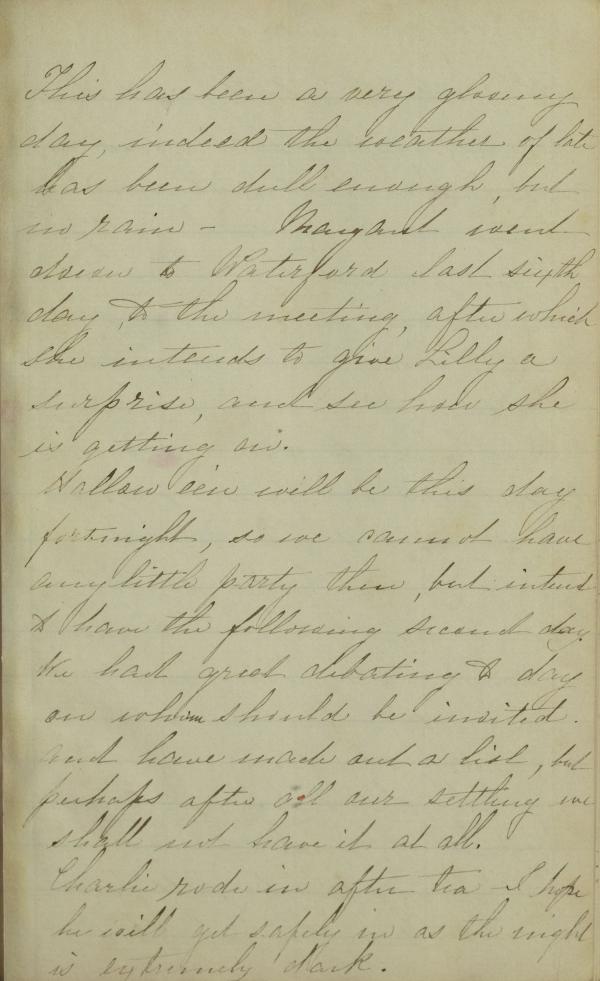 This has been a very gloomy
day, indeed the weather of late
has been dull enough, but
no rain - Margaret went
down to Waterford last sixth
day, to the meeting, after which
she intends to give Lilly a
surprise, and see how she
is getting on.
Hallow e'en will be this day
fortnight, so we cannot have
any little party then, but intend
to have the following second day.
We had great debating to day
on whom should be invited.
and have made out a list, but
perhaps after all our settling we
shall not have it at all.
Charlie rode in after tea - I hope
he will get safely in as the night
is extremely dark.